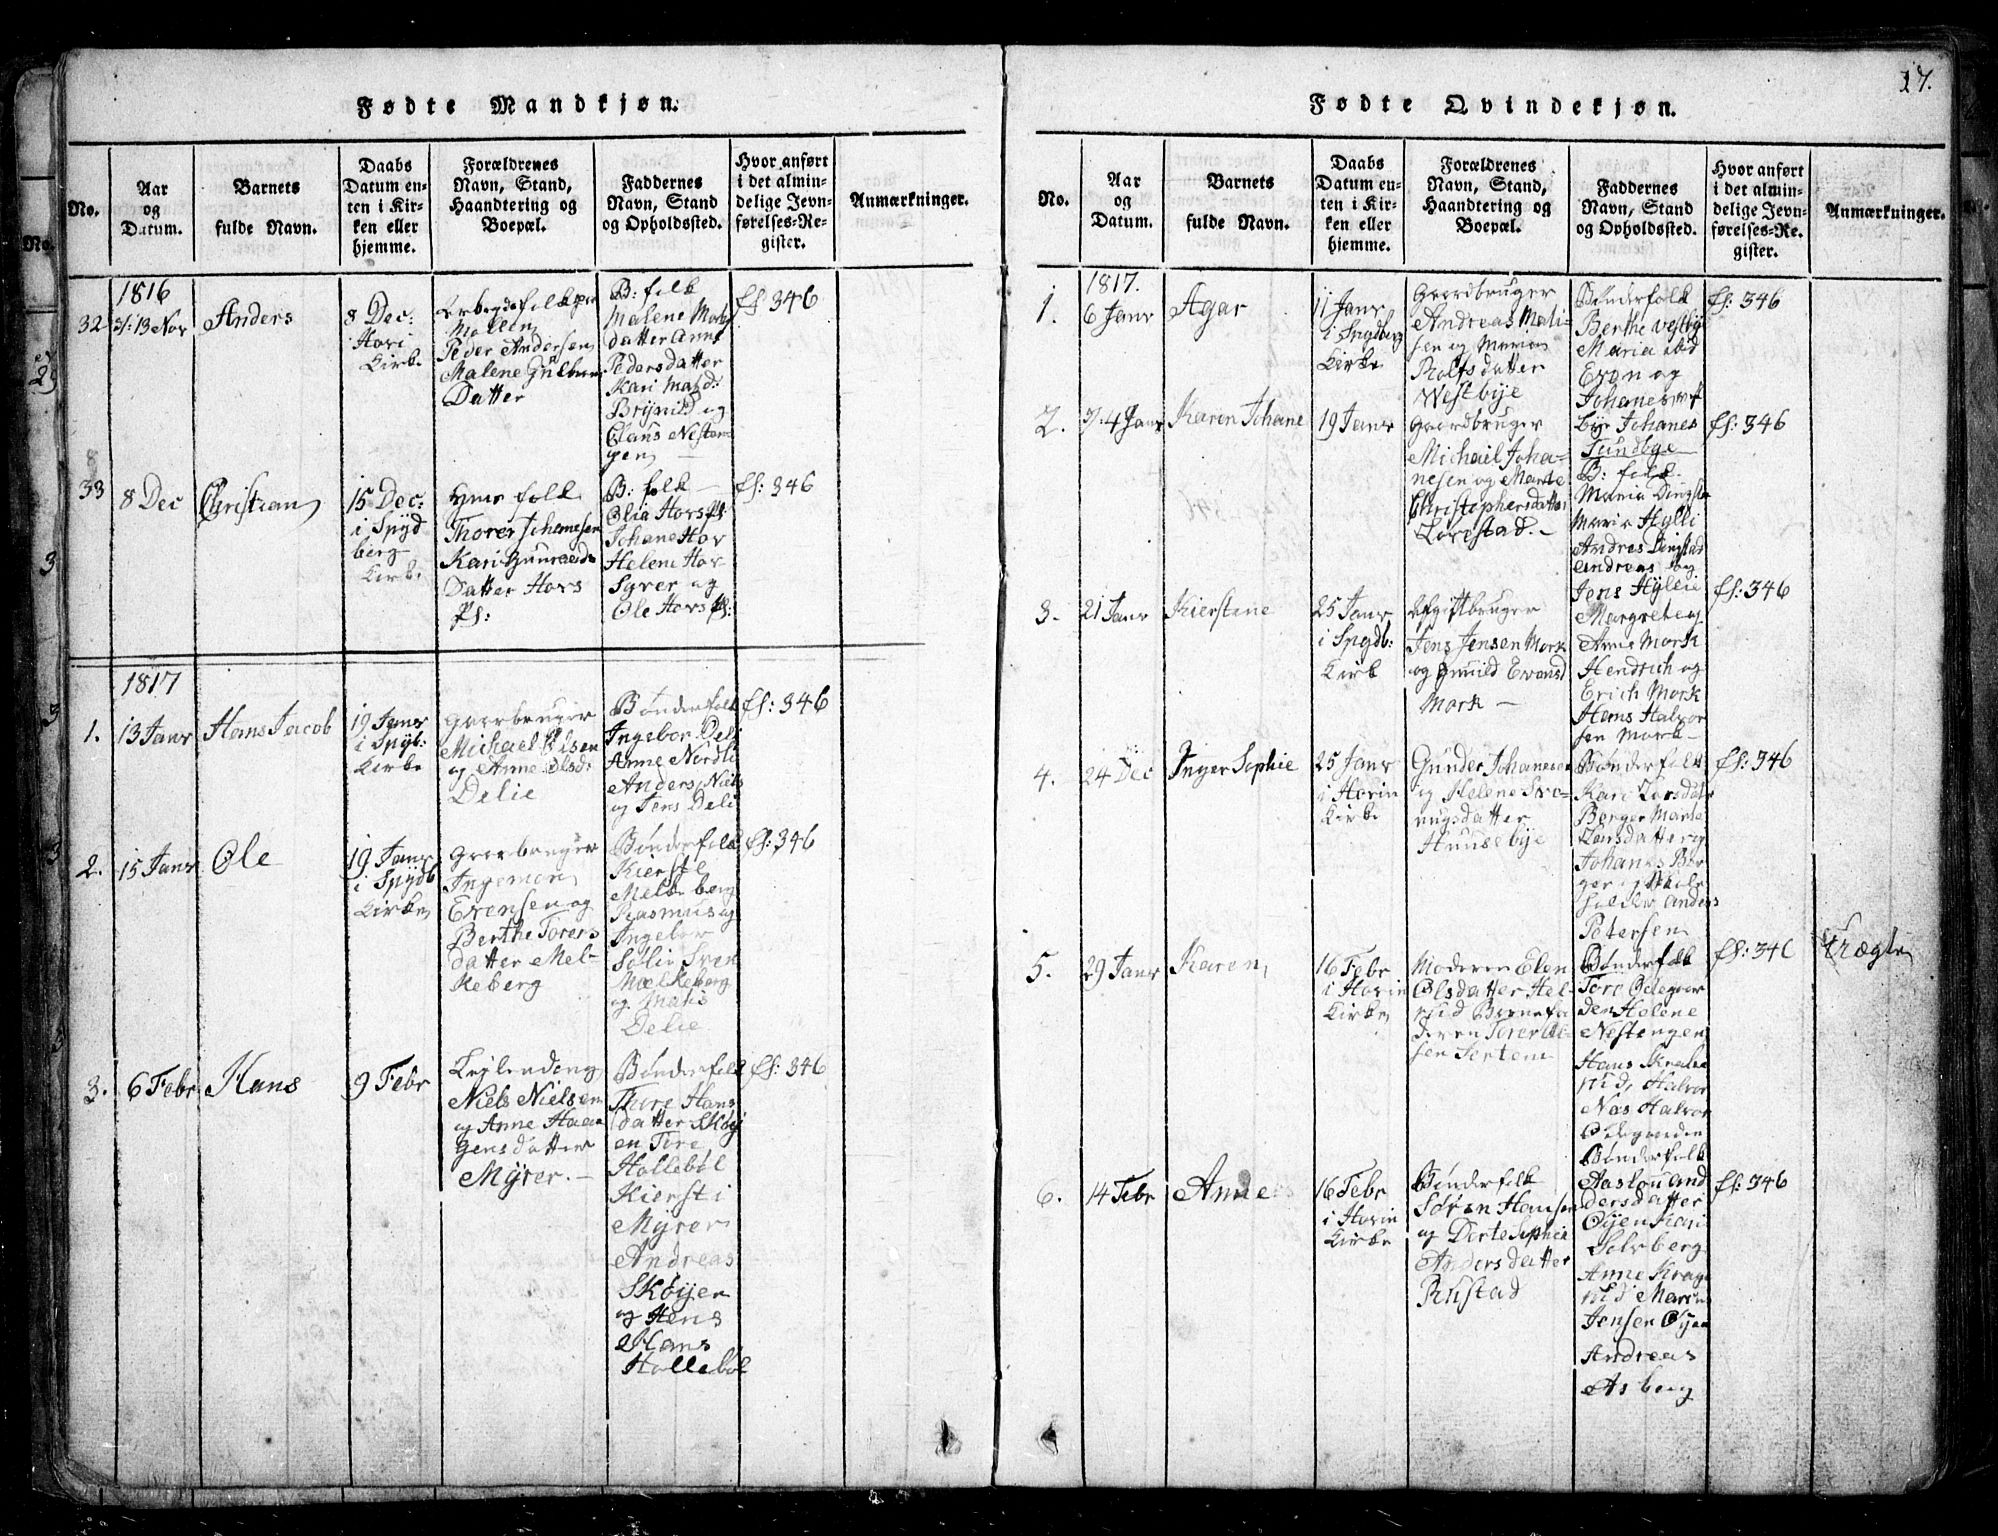 17.
Fødte Mandkjøn.
No.
Aar
og
Datum.
Barnets
fulde Navn.
Daabs
Datum en-
ten i Kir-
ken eller
hjemme.
Forældrenes
Navn, Stand,
Haandtering og
Boepæl.
Faddernes
Navn, Stand
og Opholdssted.
Hvor anført
i det almin-
delige Jevn-
førelses-Re-
gister.
Anmærkninger.
1816
32
13 Nov
Anders
8 Dec:
Kirke
Peder Andersen
Malene
Datter
B: folk
Malene
datter Anne
Pedersdatter
Kari
Brynild og
Claus Nesten-
gen
fs: 346
33
8 Dec
Christian
15 Dec:
i Spyd
berg
Kirke
folk
Thorer Johanesen
Kari
Datter Hors
Ps:
B: folk
Olia Hors Ps
Johane Hor
Helene Hor
Syver og
Ole Hors Ps:
fs: 346
1817
1.
13 Janr
Hans Jacob
19 Janr
i Spyb:
Kirke
Michael Olsen
og Anne Olsd:
Delie
Bønderfolk
Ingebor Deli
Anne Nordli
Anders Niels
og Jens Deli
fs: 346
2.
15 Janr
Ole
19 Janr
i Spydb
Kirke
Ingemon
Evensen og
Berthe Torers
datter Mel-
keberg
Bønderfolk
Kiersti
Melkeberg
Rasmus og
Ingebor
Solie Sven
Melkeberg
og
Delie
fs: 346
3.
6 Febr
Hans
9 Febr
Niels Nielsen
og Anne Haa-
gensdatter
Myrer.
Bønderfolk
Thore Hans
datter Skøy
en Tore
Hollebøl
Kiersti
Myrer
Andreas
Skøyen
og Hens
Hans
Hollebøl
fs: 346
Fødte Qvindekjøn.
No.
Aar
og
Datum.
Barnets
fulde Navn.
Daabs
Datum en-
ten i Kir-
ken eller
hjemme.
Forældrenes
Navn, Stand,
Haandtering og
Boepæl.
Faddernes
Navn, Stand
og Opholdssted.
Hvor anført
i det almin-
delige Jevn-
førelses-Re-
gister.
Anmærkninger.
1817.
1.
6 Janr
Agar
11 Janr
i Spydberg
Kirke
Gaardbruger
Andreas Mali-
sen og Maren
Rolfsdatter
Westbye
Bønderfolk
Berthe Vestby
Maria ibid
Even og
Johanes
bye Johanes
Tundbye
fs: 346
2.
4 Janr
Karen Johane
19 Janr
Gaardbruger
Michael Joha-
nesen og Marte
Christophersdatter
Loristad.
B: folk
Maria Dingsta
Maria Hylli
Andres Dingstad
Andreas og
Jens Hyllie
fs: 346
3.
21 Janr
Kierstine
25 Janr
i Spydb:
Kirk
Afgiftbruger
Jens Jensen Mork
og Gunild Evensd
Mork
Margrete og
Anne Mork
Hendrich og
Erich Mork
Hans Halvor
sen Mork
fs: 346
4.
24 Dec
Inger Sophie
25 Janr
i Hovin
Kirke
Gunder Johanesen
og Helene Sve-
nungsdatter
Huusebye
Bønderfolk
Kari Larsdatr
Berger Marte
Larsdatter og
Johanes Ber
ger
Anders
Petersen
fs: 346
5.
29 Janr
Karen
16 Febr
i Hovin
Kirke
Moderen Elen
Olsdatter Hel-
Barnefa
deren Torer
sen
Bønderfolk
Tore Ødegaar
den Helene
Nestengen
Hans
Halvor
Næs Halvor
Ødegaarden
fs: 346
6.
14 Febr
Anne
16 Febr
i Hovin
Kirke
Bønderfolk
Søren Hansen
og Dorte Sophie
Andersdatter
Rustad
Bønderfolk
Aaslou An
dersdatter
Øyen Kari
Solvberg
Anne Krage
rud Marius
Jensen Øyen
Andreas
Asberg
fs: 346